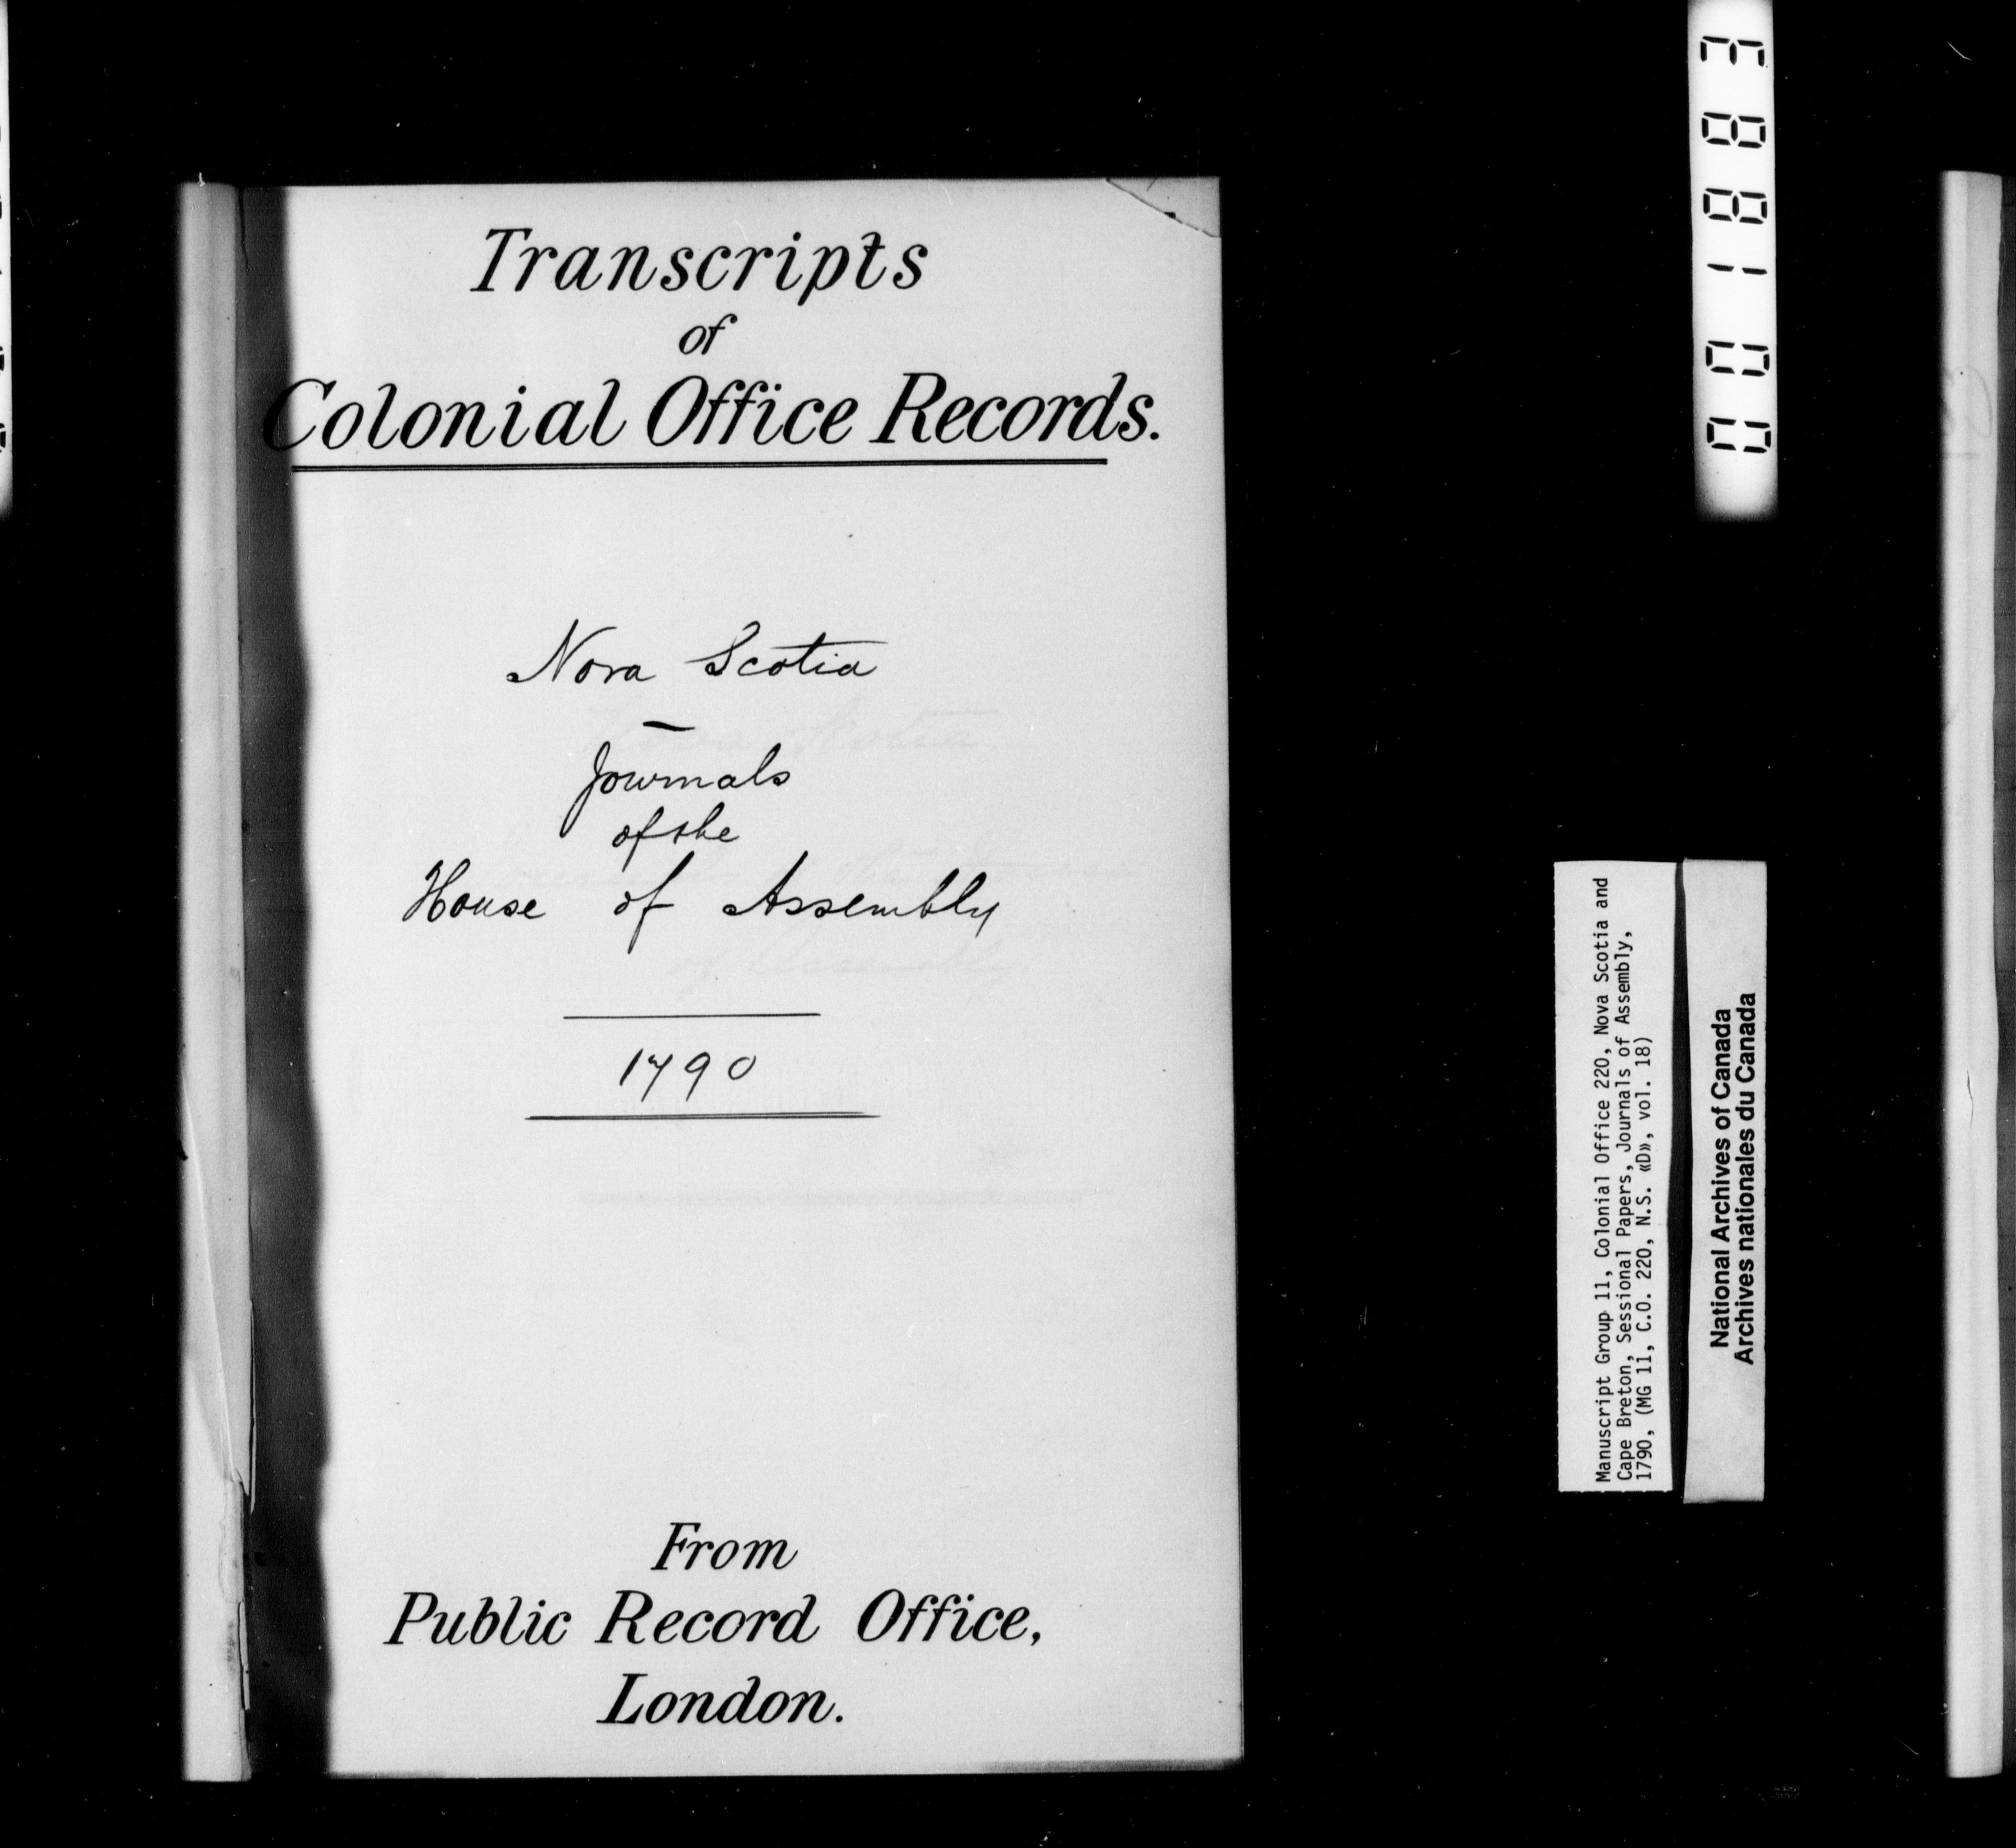 Transcripts
of
Colonial Office Records.
Nova Scotia
Journals
of the
House of Assembly
1790
From
Public Record Office,
London.
001883
Manuscript Group 11, Colonial Office 220, Nova Scotia and
Cape Breton, Sessional Papers, Journals of Assembly,
1790, (MG 11, C.O. 220, N.S. «D», vol. 18)
National Archives of Canada
Archives nationales du Canada